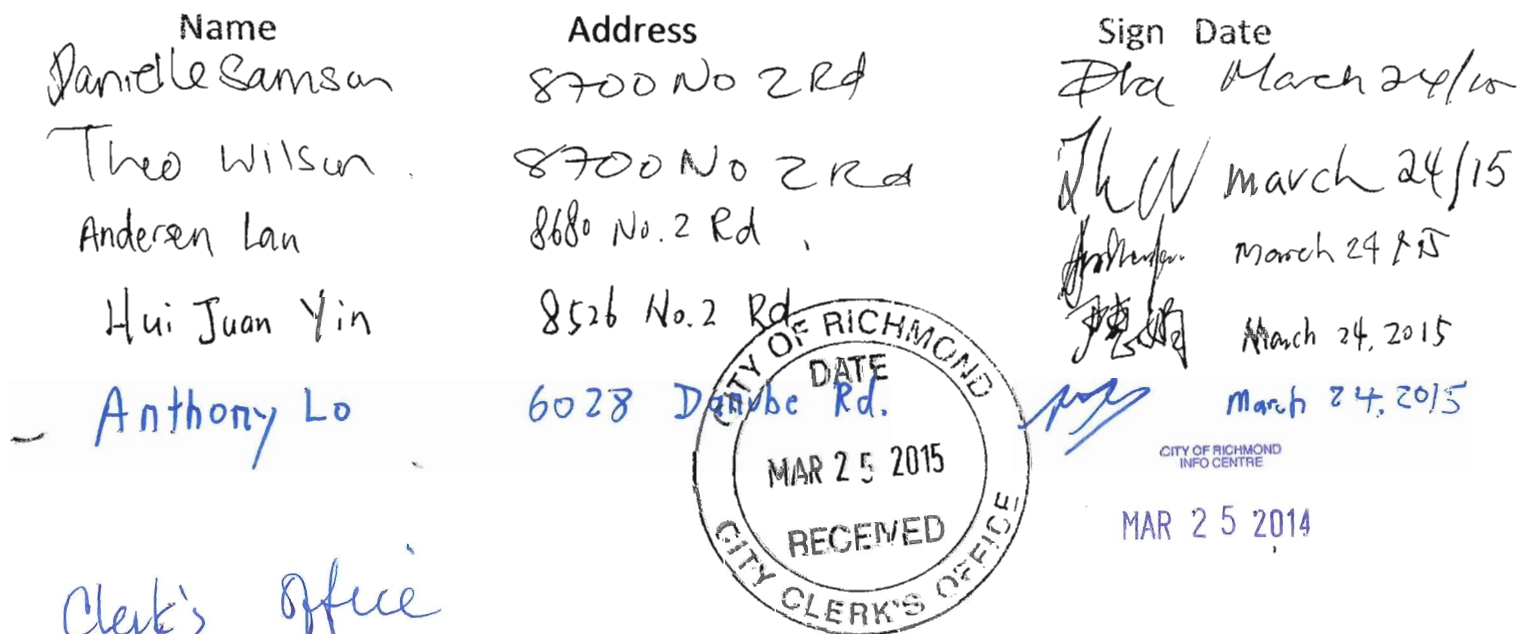 Name Address Sign Date
Danielle Samson 8700 No 2 Rd March 24/15
Theo Wilson. 8700 No 2 Rd TKW march 24/15
Andersen Lau 8680 No. 2 Rd. March 24 / 15
Hui Juan Yin 8526 No. 2 Rd 尹惠娟 March 24, 2015
Anthony Lo 6028 Danube Rd. March 24, 2015
CITY OF RICHMOND
DATE
MAR 25 2015
RECEIVED
CITY CLERK'S OFFICE
CITY OF RICHMOND
INFO CENTRE
MAR 25 2014
Clerk's Office